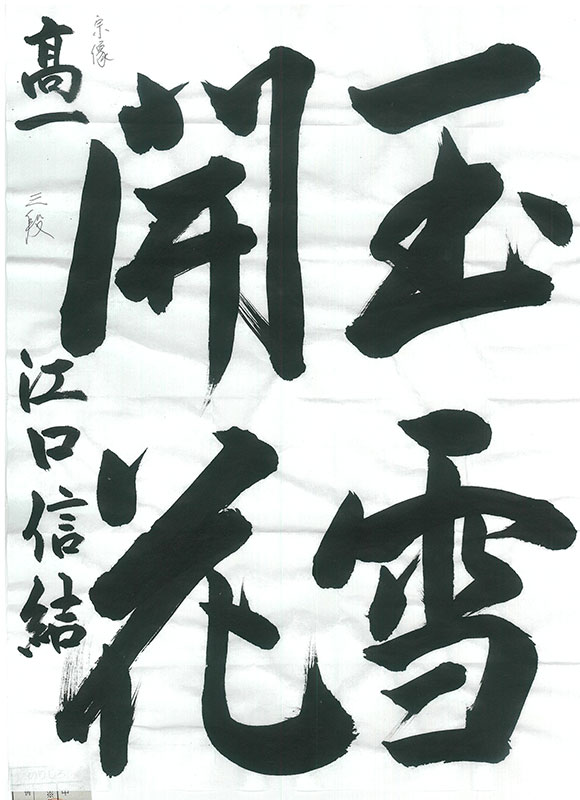 玉雪
開花
宗像
高一
三段
江口信結